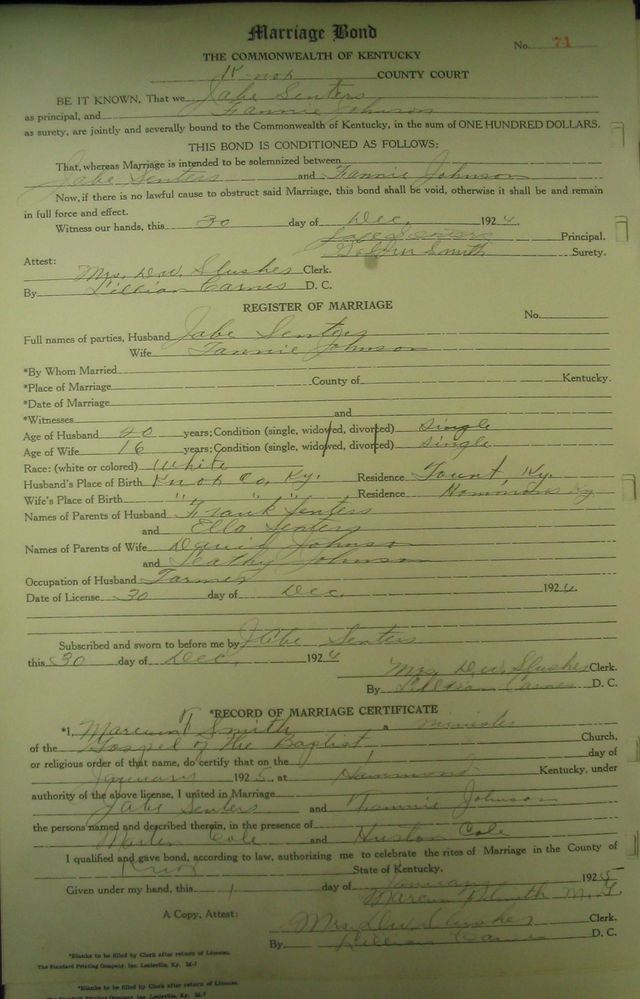 Marriage Bond
No. 71
THE COMMONWEALTH OF KENTUCKY
Knox COUNTY COURT
BE IT KNOWN, That we Jabe Senters
as principal, and Fannie Johnson
as surety, are jointly and severally bound to the Commonwealth of Kentucky, in the sum of ONE HUNDRED DOLLARS.
THIS BOND IS CONDITIONED AS FOLLOWS:
That, whereas Marriage is intended to be solemnized between
Jabe Senters and Fannie Johnson
Now, if there is no lawful cause to obstruct said Marriage, this bond shall be void, otherwise it shall be and remain
in full force and effect.
Witness our hands, this 30 day of Dec. 1924
Jabe Senters Principal.
Smith Surety.
Attest:
Mrs. D.W. Slusher Clerk.
By Lillian Carnes D. C.
REGISTER OF MARRIAGE
No.
Full names of parties, Husband Jabe Senters
Wife Fannie Johnson
*By Whom Married
*Place of Marriage County of Kentucky.
*Date of Marriage
*Witnesses and
Age of Husband 20 years; Condition (single, widowed, divorced) Single
Age of Wife 16 years; Condition (single, widowed, divorced) Single
Race: (white or colored) White
Husband's Place of Birth Knox Co, Ky. Residence Fount, Ky.
Wife's Place of Birth " " " " Residence Ky
Names of Parents of Husband Frank Senters
and Ella Senters
Names of Parents of Wife David Johnson
and Leathy Johnson
Occupation of Husband Farmer
Date of License 30 day of Dec. 1924
Subscribed and sworn to before me by Jabe Senters
this 30 day of Dec. 1924
Mrs. D.W. Slusher Clerk.
By Lillian Carnes D. C.
*RECORD OF MARRIAGE CERTIFICATE
*I, Marcum Smith a minister
of the Gospel of the Baptist Church,
or religious order of that name, do certify that on the 1 day of
January 1925, at Hammond Kentucky, under
authority of the above license, I united in Marriage
Jabe Senters and Fannie Johnson
the persons named and described therein, in the presence of
Cole and Huston Cole
I qualified and gave bond, according to law, authorizing me to celebrate the rites of Marriage in the County of
Knox State of Kentucky.
Given under my hand, this 1 day of January 1925
Marcum Smith M. G.
A Copy, Attest: Mrs. D.W. Slusher Clerk.
By Lillian Carnes D. C.
*Blanks to be filled by Clerk after return of License.
The Standard Printing Company, Inc. Louisville, Ky.
*Blanks to be filled by Clerk after return of License.
The Standard Printing Company, Inc. Louisville, Ky.